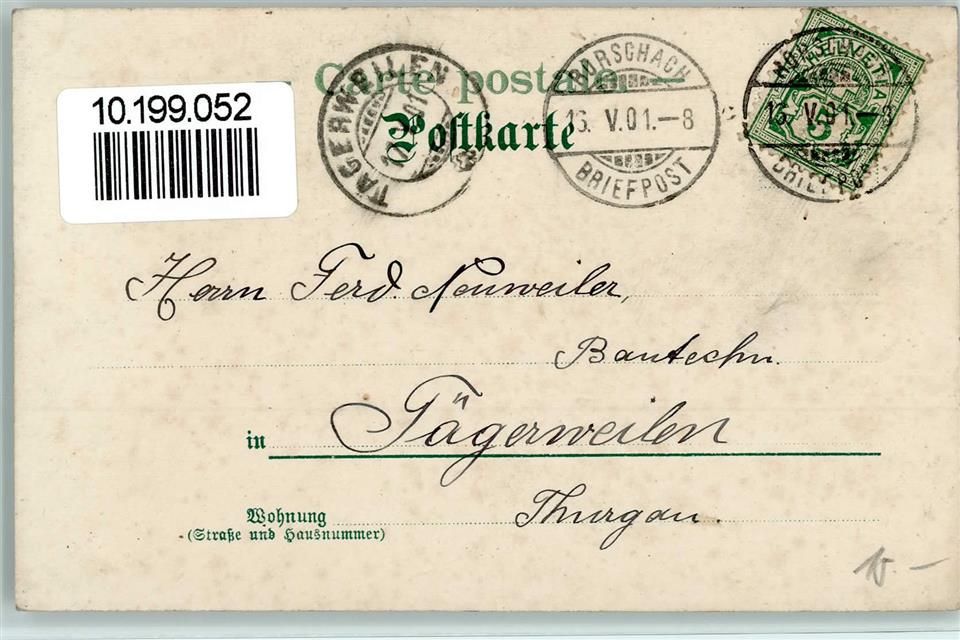 10.199.052
Carte postale
Postkarte
TÄGERWEILEN
RORSCHACH
13. V.01.–8
BRIEFPOST
HELVETIA
5
13. V.01.–8
BRIEFPOST
Herrn Ferd. Neuweiler,
Bautechn.
in Tägerweilen
Wohnung
(Straße und Hausnummer)
Thurgau.